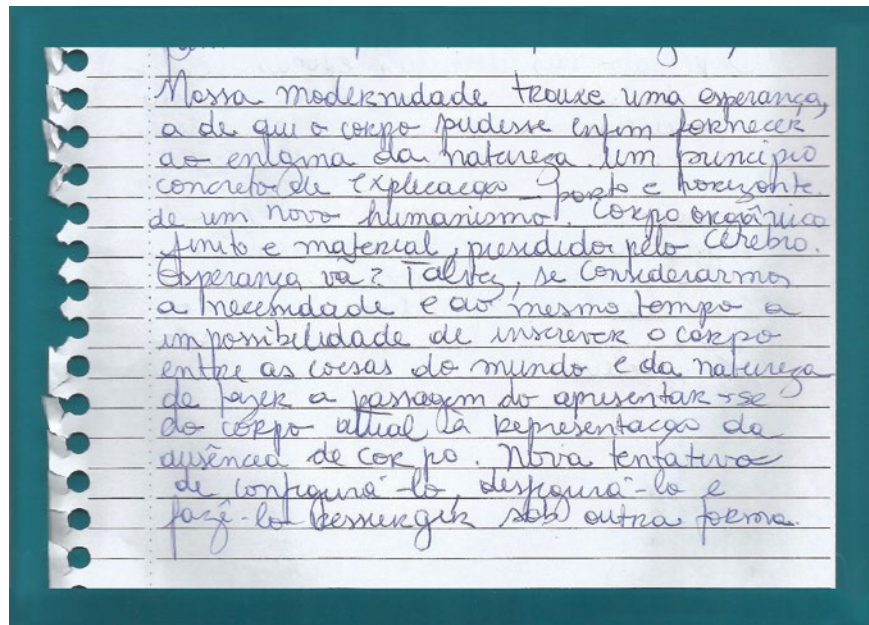 Nossa modernidade trouxe uma esperança,
a de que o corpo pudesse enfim fornecer
ao enigma da natureza um princípio
concreto de explicação – porto e horizonte
de um novo humanismo. Corpo orgânico
finito e material, presidido pelo cérebro.
Esperança vã? Talvez, se considerarmos
a necessidade e ao mesmo tempo a
impossibilidade de inscrever o corpo
entre as coisas do mundo e da natureza
de fazer a passagem do apresentar-se
do corpo atual à representação da
ausência de corpo. Nova tentativa
de configurá-lo, desfigurá-lo e
fazê-lo ressurgir sob outra forma.